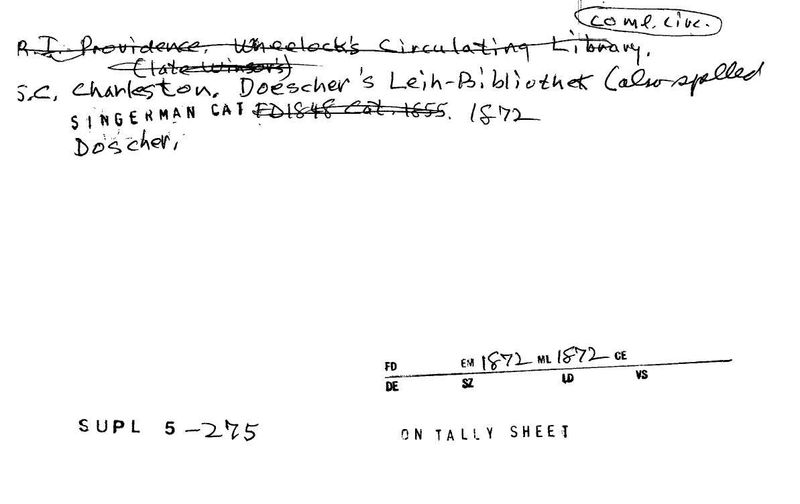 come. circ.
R.I. Providence, Wheelock's Circulating Library.
(late Winsor's)
S.C. Charleston. Doescher's Leih-Bibliothek (also spelled
SINGERMAN CAT FD1848 Cat. 1855. 1872
Doscher,
FD EM 1872 ML 1872 CE
DE SZ LD VS
SUPL 5-275
ON TALLY SHEET